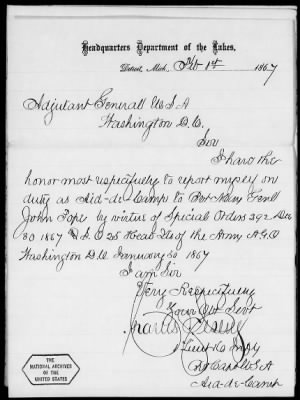 Headquarters Department of the Lakes,
Detroit, Mich. Feb 1st 1867
Adjutant General U S A
Washington D.C.
Sir
I have the
honor most respectfully to report myself on
duty as Aid-de-Camp to Bvt Maj Genl
John Pope by virtue of Special Orders 292 Dec
30 1867 25 Head Qts of the Army A.G.O
Washington D.C. January 30 1867
I am Sir
Very Respectfully
Your Obt Servt
Charles
1 Lieut Infy
Bvt Capt U S A
Aid-de-Camp
THE
NATIONAL ARCHIVES
OF THE
UNITED STATES